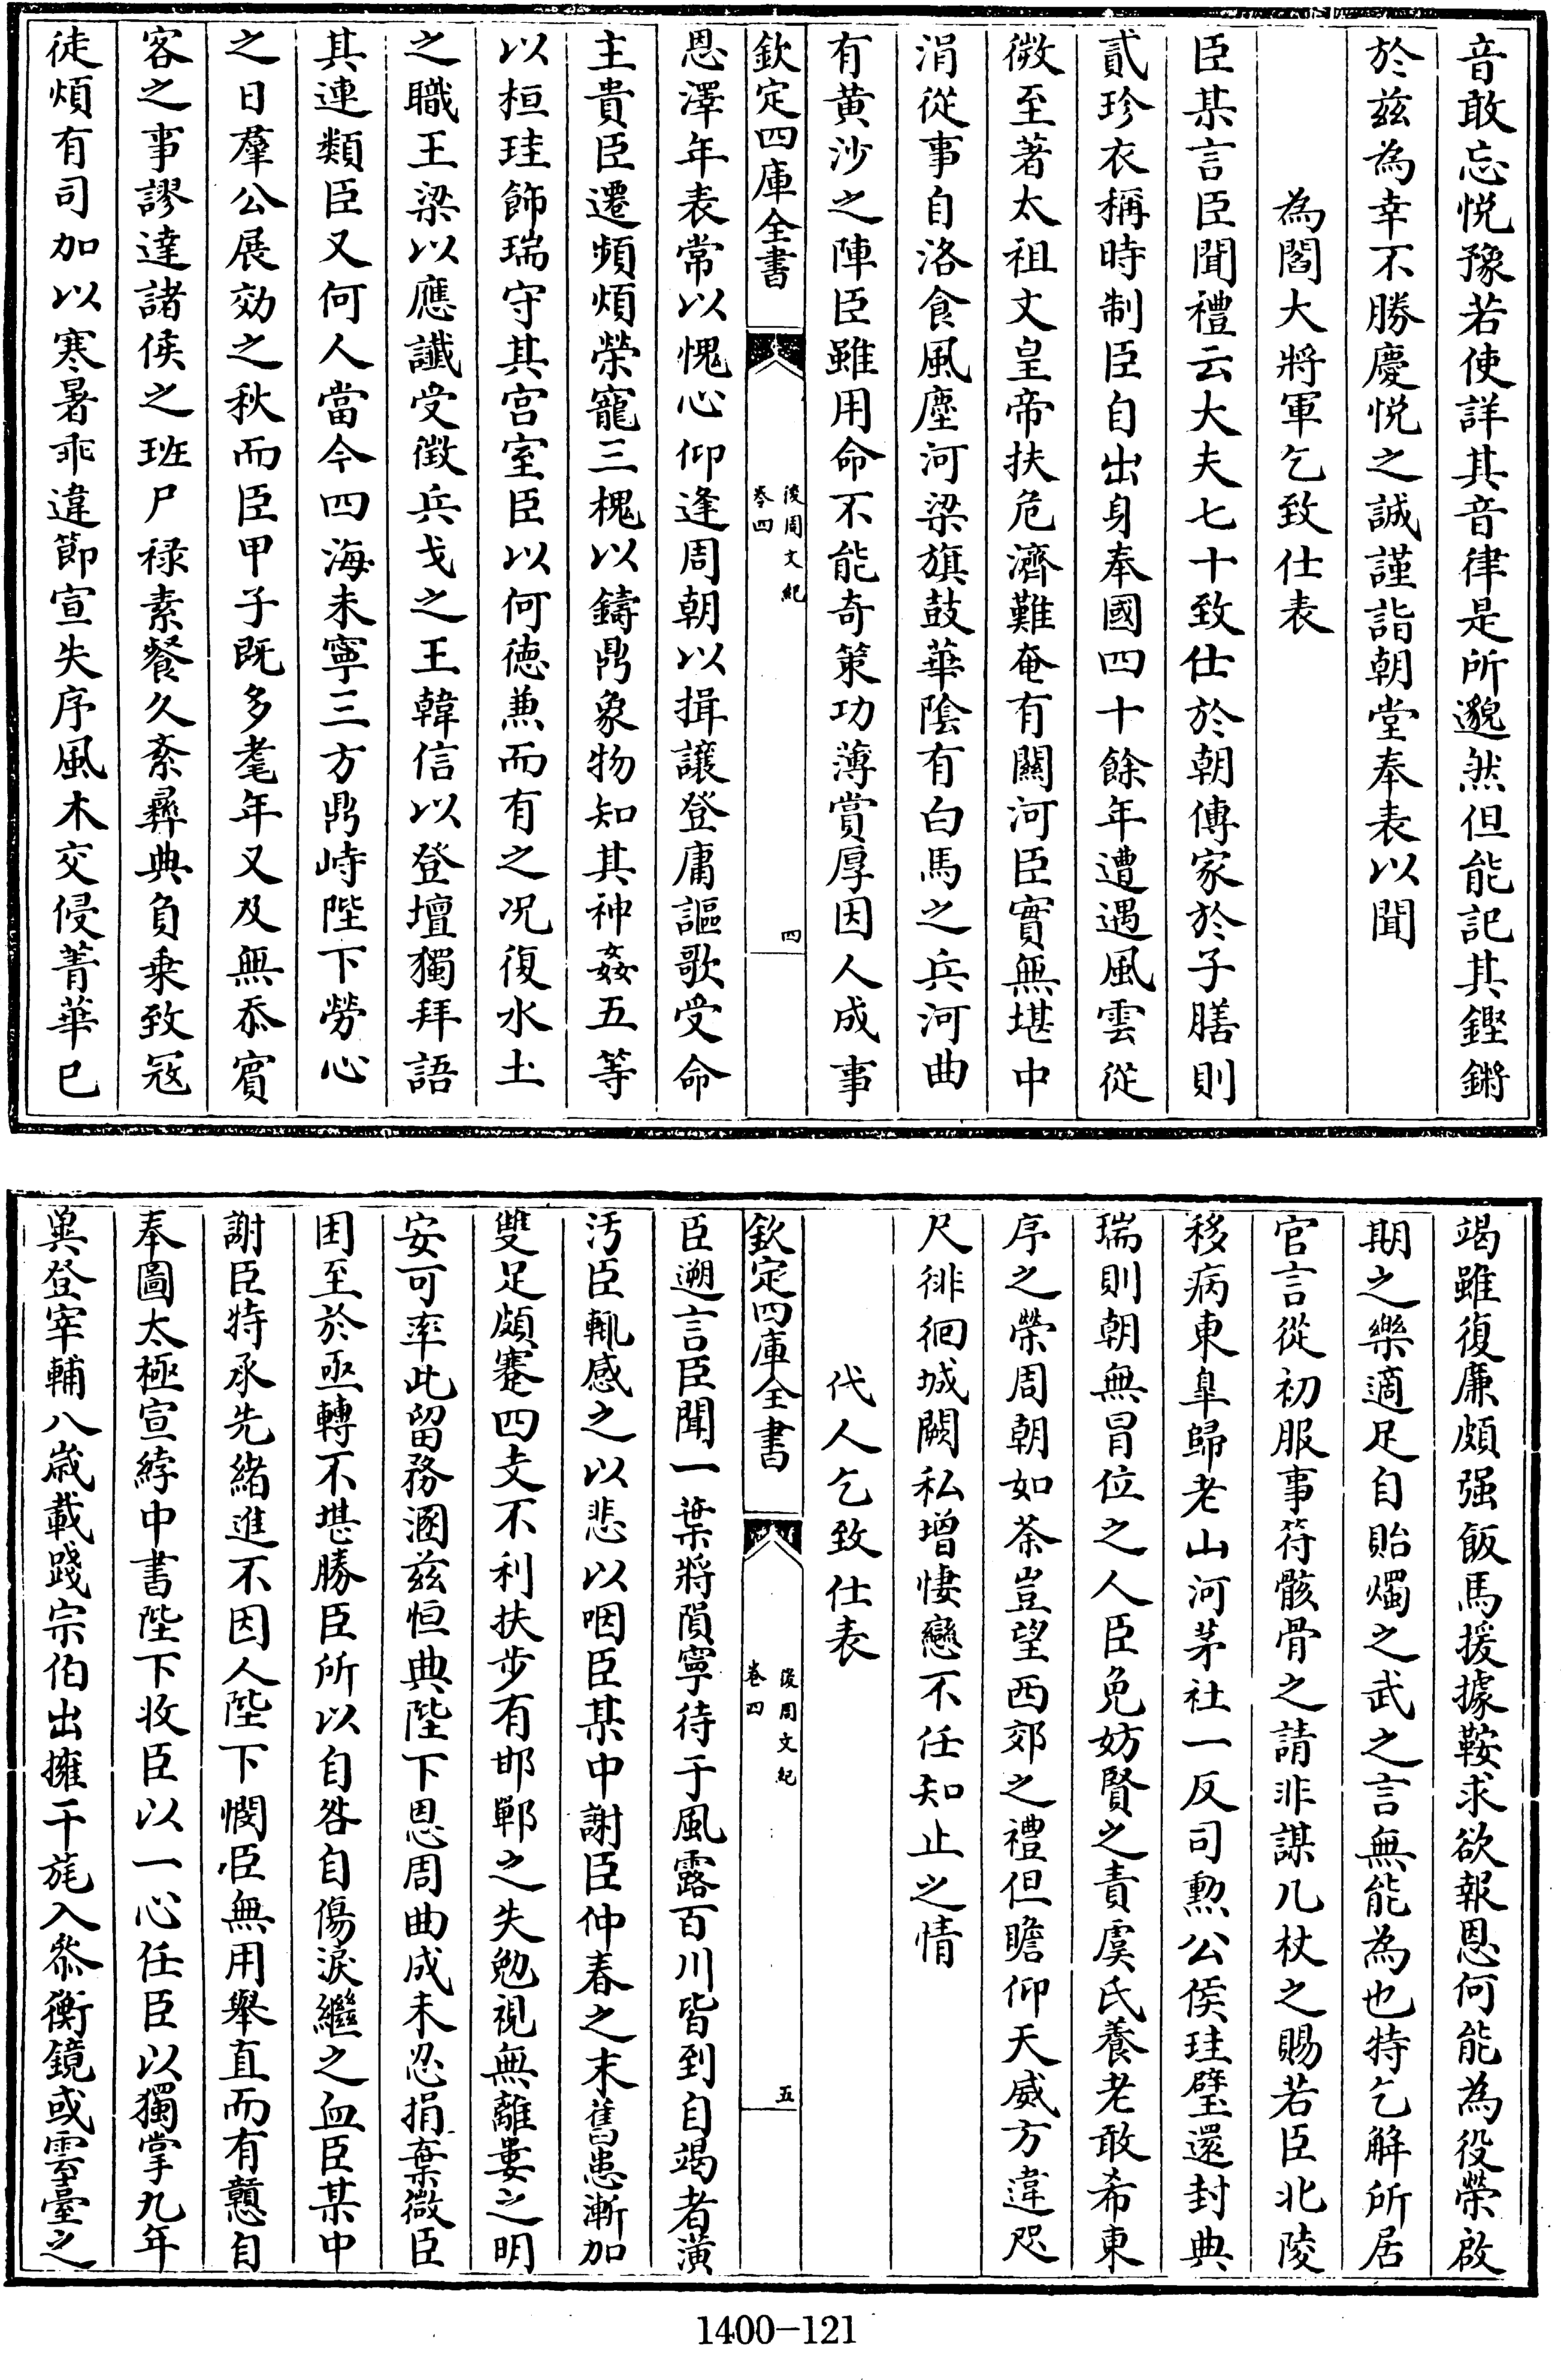 音敢忘悦豫若使詳其音律是所邈然但能記其鏗鏘
於兹為幸不勝慶悦之誠謹詣朝堂奉表以聞
為閻大將軍乞致仕表
臣某言臣聞禮云大夫七十致仕於朝傳家於子膳則
貳珍衣稱時制臣自出身奉國四十餘年遭遇風雲從
微至著太祖文皇帝扶危濟難奄有關河臣實無堪中
涓從事自洛食風塵河梁旗鼓華陰有白馬之兵河曲
有黄沙之陣臣雖用命不能奇策功薄賞厚因人成事
欽定四庫全書
後周文紀
卷四
四
恩澤年表常以愧心仰逢周朝以揖讓登庸謳歌受命
主貴臣遷頻煩榮寵三槐以鑄鼎象物知其神姦五等
以桓珪飾瑞守其宫室臣以何德兼而有之况復水土
之職王梁以應讖受徴兵戈之王韓信以登壇獨拜語
其連類臣又何人當今四海未寧三方鼎峙陛下勞心
之日羣公展効之秋而臣甲子既多耄年又及無忝賓
客之事謬達諸侯之班尸禄素餐久紊彝典負乗致寇
徒煩有司加以寒暑乖違節宣失序風木交侵菁華已
竭雖復廉頗强飯馬援據鞍求欲報恩何能為役榮啟
期之樂適足自貽燭之武之言無能為也特乞解所居
官言從初服事符骸骨之請非謀几杖之賜若臣北陵
移病東臯歸老山河茅社一反司勲公侯珪璧還封典
瑞則朝無冒位之人臣免妨賢之責虞氏養老敢希東
序之榮周朝如荼豈望西郊之禮但瞻仰天威方違咫
尺徘徊城闕私增悽戀不任知止之情
代人乞致仕表
欽定四庫全書
後周文紀
卷四
五
臣遡言臣聞一葉將隕寧待于風露百川皆到自竭者潢
汚臣輒感之以悲以咽臣某中謝臣仲春之末舊患漸加
雙足頗蹇四支不利扶步有邯鄲之失勉視無離婁之明
安可率此留務溷兹恒典陛下恩周曲成未忍捐棄微臣
困至於亟轉不堪勝臣所以自咎自傷淚繼之血臣某中
謝臣特承先緒進不因人陛下憫臣無用舉直而有戇自
奉圖太極宣綍中書陛下收臣以一心任臣以獨掌九年
巽登宰輔八歳載踐宗伯出擁干旄入叅衡鏡或雲臺之
1400-121